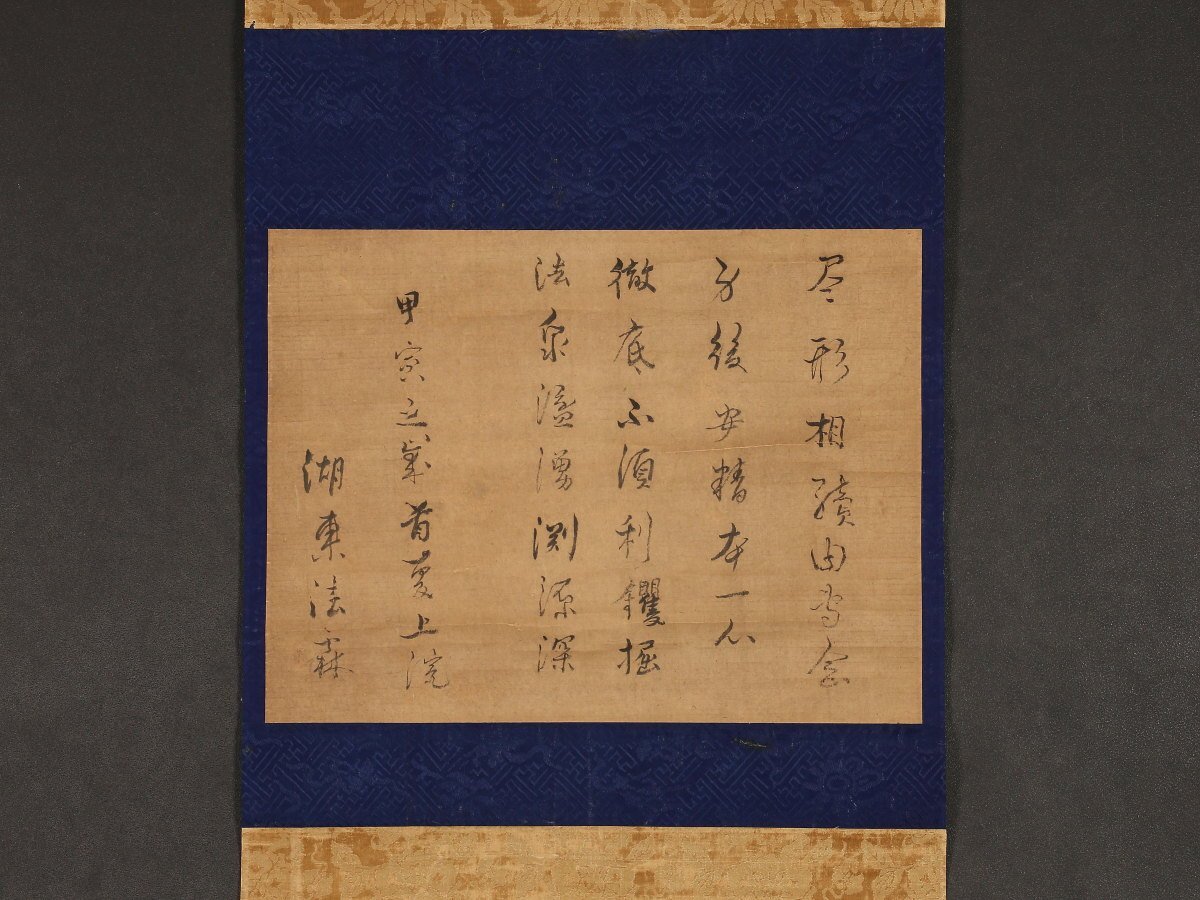 尽形相續由當念
身後安精本一心
徹底不須利钁掘
法泉溢湧渕源深
甲寅之歳首夏上浣
湖東法霖